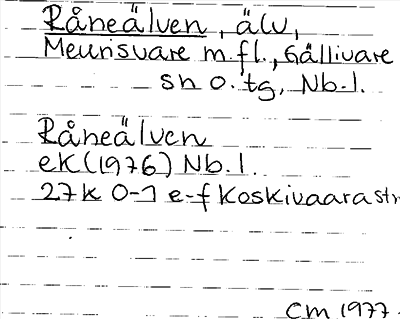 Råneälven, älv,
Meurisvare m.fl., Gällivare
sn o. tg, Nb.l.
Råneälven
ek (1976) Nb.l.
27K 0-1 e-f Koskivaara str
CM 1977.